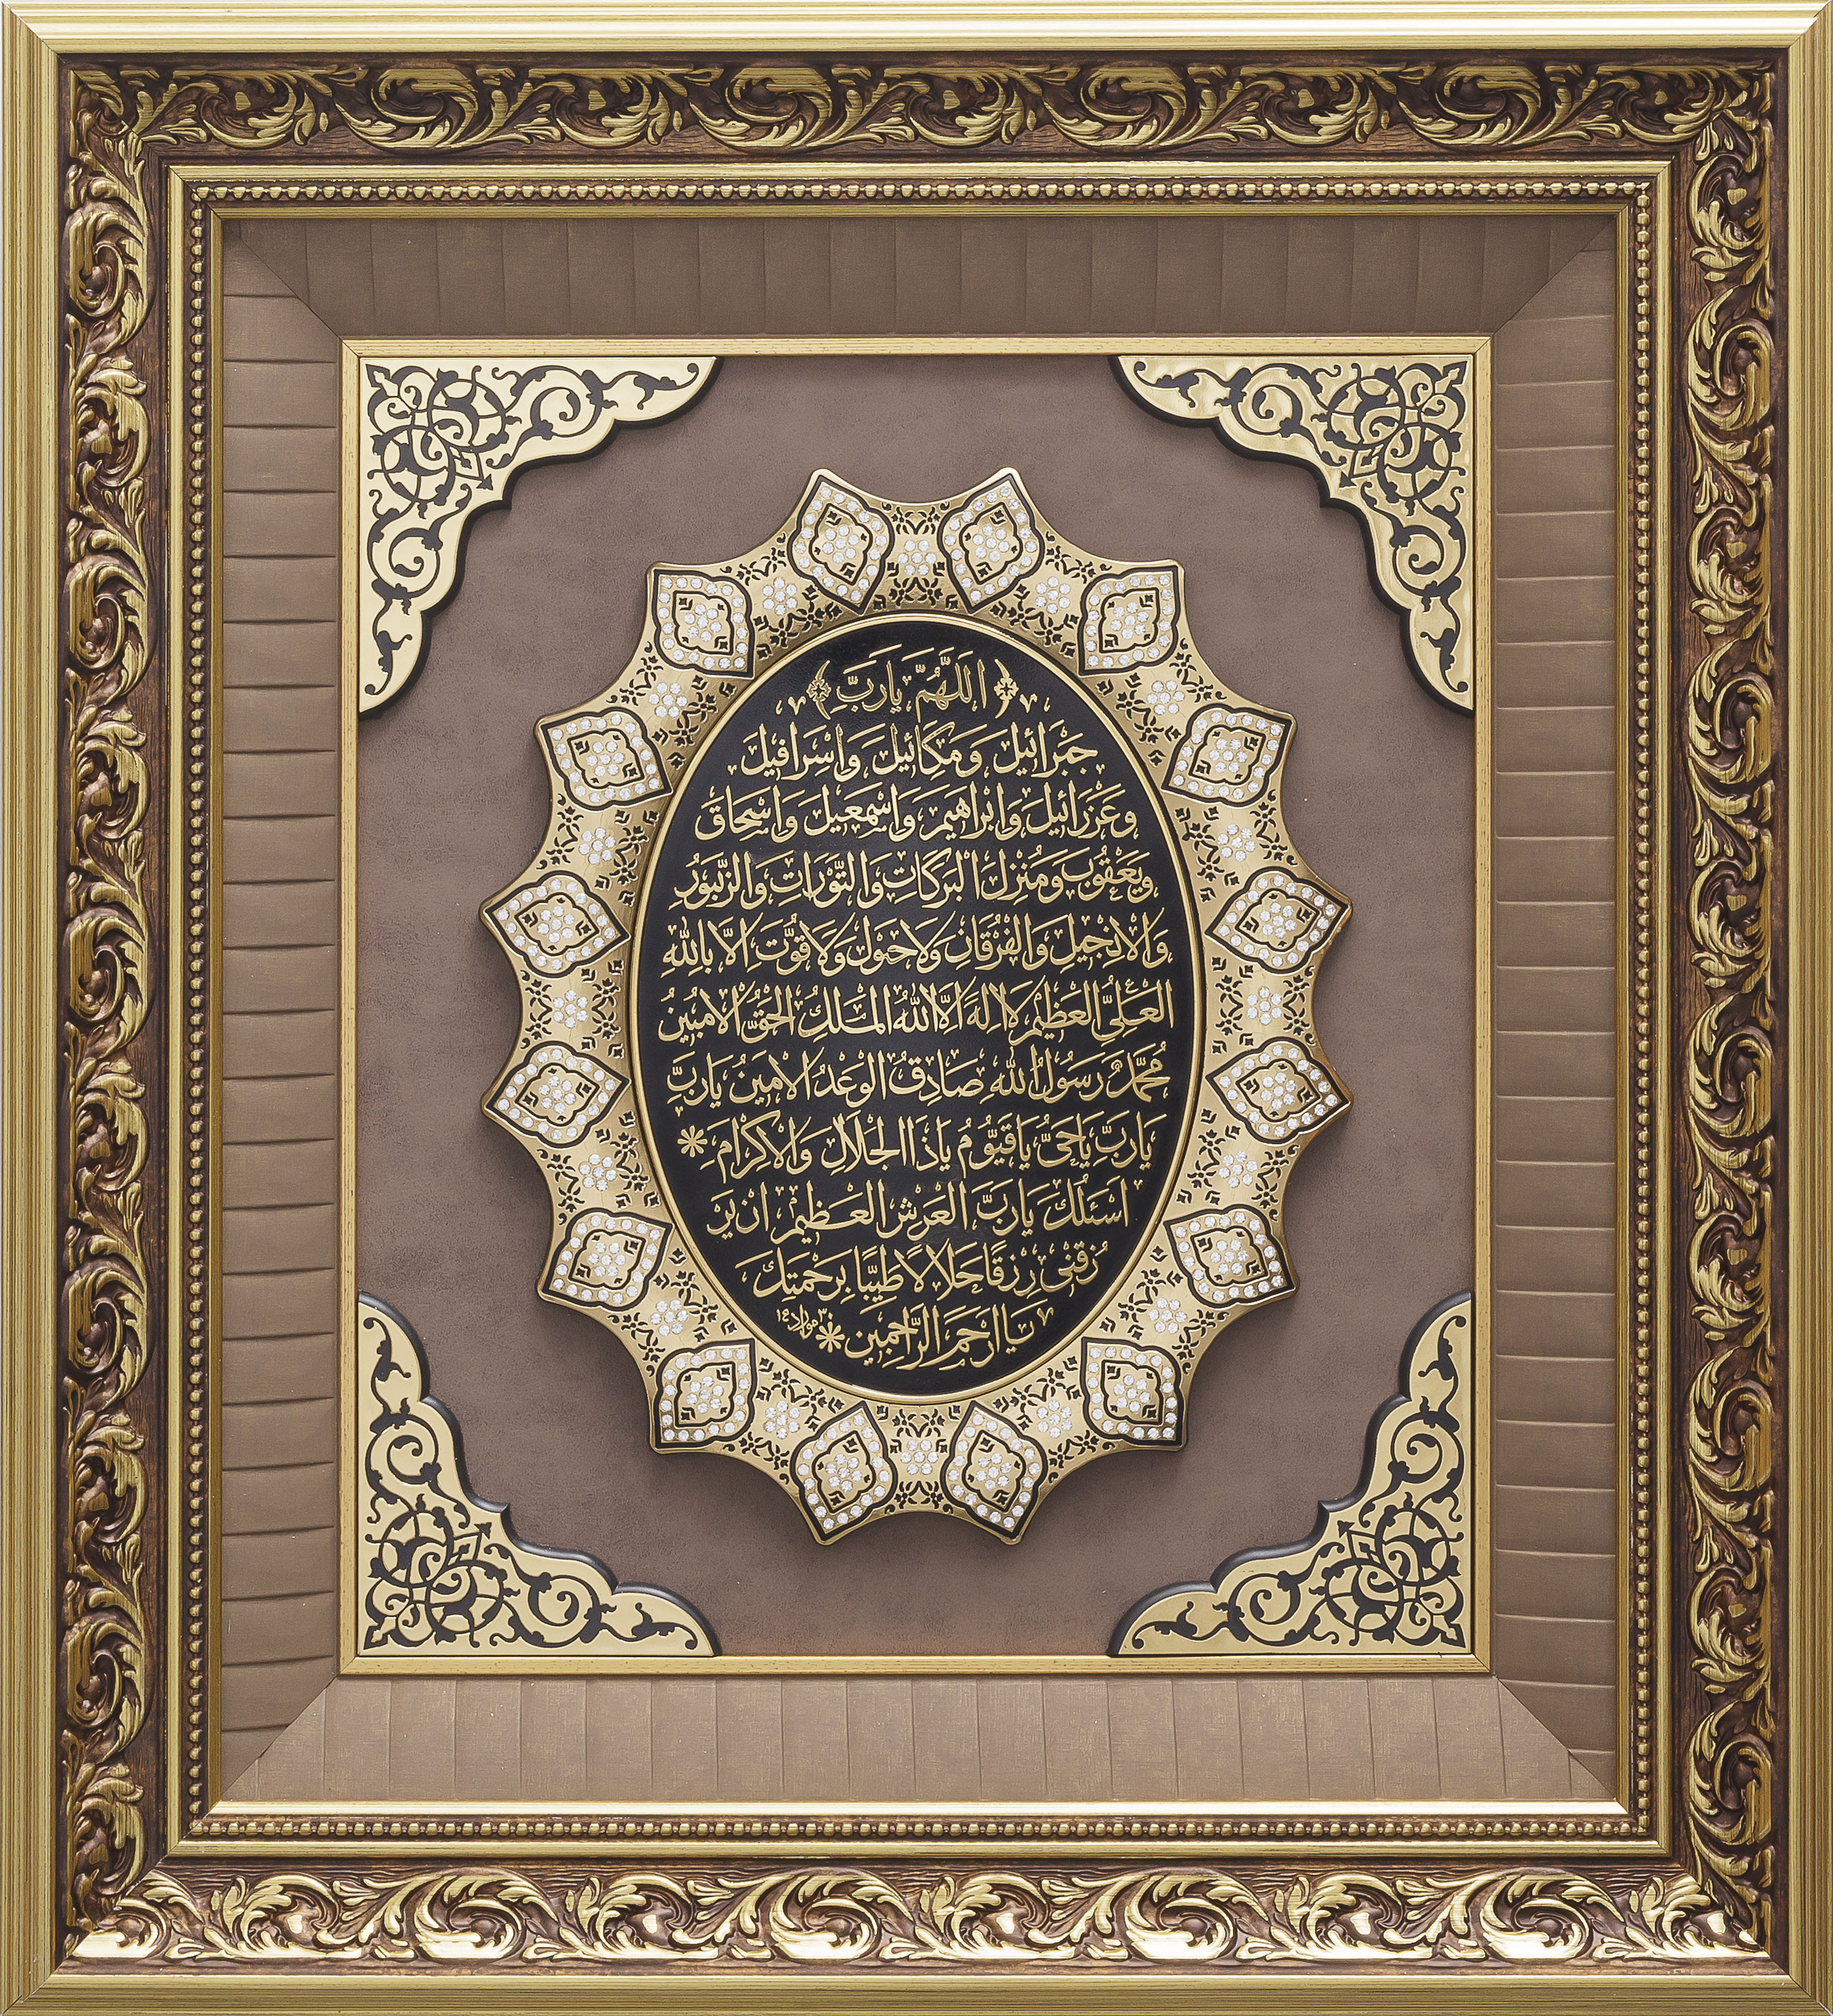 ﴿اَللّٰهُمَّ يَارَبَّ﴾
جَبْرَائيلَ وَمِكَائيلَ وَاِسْرَافيلَ
وَعَزْرَائيلَ وَاِبْرَاهيمَ وَاِسْمٰعيلَ وَاِسْحَاقَ
وَيَعْقُوبَ وَمُنْزِلَ الْبَرَكَاتِ وَالتَّوْرَاتِ وَالزَّبُورِ
وَالْاِنْجيلِ وَالْفُرْقَانِ وَلَاحَوْلَ وَلَاقُوَّتَ اِلَّا بِاللّٰهِ
الْعَلِىِّ الْعَظيمِ لَا اِلٰهَ اِلَّا اللّٰهُ الْمَلِكُ الْحَقُّ الْاَمُبينُ
مُحَمَّدٌ رَسُولُ اللّٰهِ صَادِقُ الْوَعْدُ الْاَمينُ يَارَبِّ
يَارَبِّ يَاحَىُّ يَاقَيُّومُ يَاذَا الْجَلَالِ وَالْاِكْرَامِ *
اَسْئَلُكَ يَارَبَّ الْعَرْشِ الْعَظيمِ اَنْ يَرْ
زُقَنى رِزْقًا حَلَالًا طَيِّبًا بِرَحْمَتِكَ
يَا اَرْحَمَ الرَّاحِمينَ *